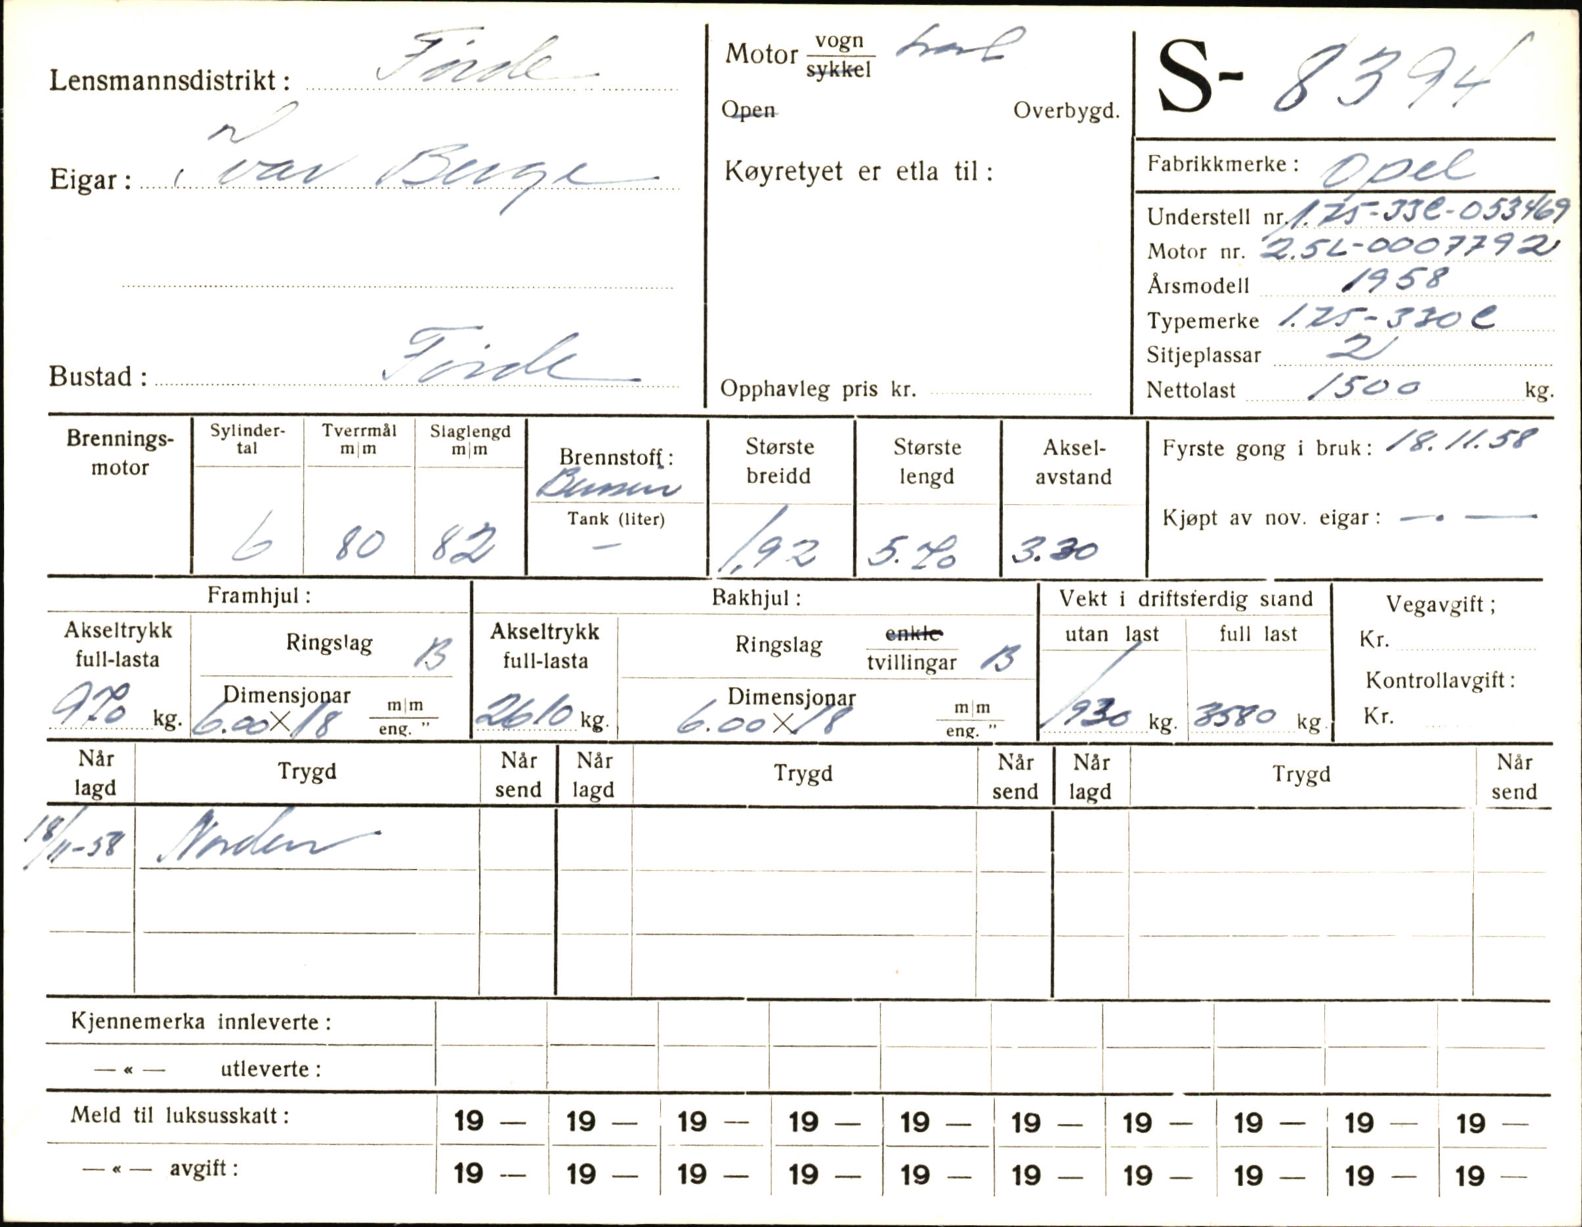 Lensmannsdistrikt: Førde
Eigar: Ivar Berge
Bustad: Førde
Motor vogn
sykkel
Open Overbygd.
Køyretyet er etla til:
Opphavleg pris kr.
S- 8394
Fabrikkmerke: Opel
Understell nr. 1.75-33C-053469
Motor nr. 2.5L-0007792
Årsmodell 1958
Typemerke 1.75-330C
Sitjeplassar 2
Nettolast 1500 kg.
Brennings-
motor
Sylinder-
tal
6
Tverrmål
m|m
80
Slaglengd
m|m
82
Brennstoff:
Bensin
Tank (liter)
—
Største
breidd
1,92
Største
lengd
5.70
Aksel-
avstand
3.30
Fyrste gong i bruk: 18.11.58
Kjøpt av nov. eigar: —.—
Framhjul:
Akseltrykk
full-lasta
970 kg.
Ringslag B
Dimensjonar
6.00 X 18 m|m
eng. "
Bakhjul:
Akseltrykk
full-lasta
2610 kg.
Ringslag enkle
tvillingar B
Dimensjonar
6.00 X 18 m|m
eng. "
Vekt i driftsferdig stand
utan last full last
1930 kg. 3580 kg.
Vegavgift;
Kr.
Kontrollavgift:
Kr.
Når
lagd Trygd Når
send Når
lagd Trygd Når
send Når
lagd Trygd Når
send
18/11-58 Norden
Kjennemerka innleverte:
— « — utleverte:
Meld til luksusskatt: 19 — 19 — 19 — 19 — 19 — 19 — 19 — 19 — 19 — 19 —
— « — avgift: 19 — 19 — 19 — 19 — 19 — 19 — 19 — 19 — 19 — 19 —